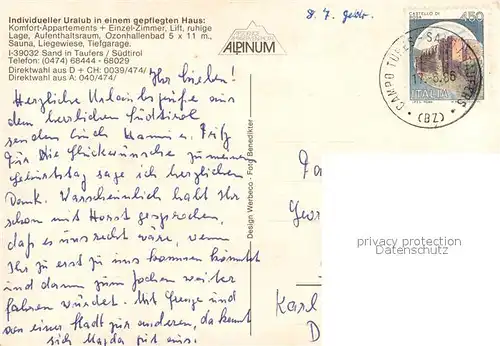 Individueller Uralub in einem gepflegten Haus:
Komfort-Appartements + Einzel-Zimmer, Lift, ruhige
Lage, Aufenthaltsraum, Ozonhallenbad 5 x 11 m.,
Sauna, Liegewiese, Tiefgarage.
I-39032 Sand in Taufers / Südtirol
Telefon: (0474) 68444 - 68029
Direktwahl aus D + CH: 0039/474/
Direktwahl aus A: 040/474/
ALPINUM
8. 7.
450
ITALIA
CAMPO TURES - SA
(BZ)
Ihr Lieben!
Herzliche Urlaubsgrüße aus
dem herrlichen Südtirol
senden Euch Hanni u. Fritz
Für Die Glückwünsche zu meinem
Geburtstag sage ich herzlichen
Dank. Warscheinlich habt Ihr
schon mit Horst gesprochen,
daß es uns recht wäre, wenn
Ihr zu erst zu uns kommen könntet
und dann zum Jochen weiter
fahren würdet. Mit Grenze und
von einer Stadt zur anderen, da kennt
sich Magda gut aus.
Design Werbeco - Foto Benedikter
Karl
D
privacy protection watermark
Datenschutz-Wasserzeichen